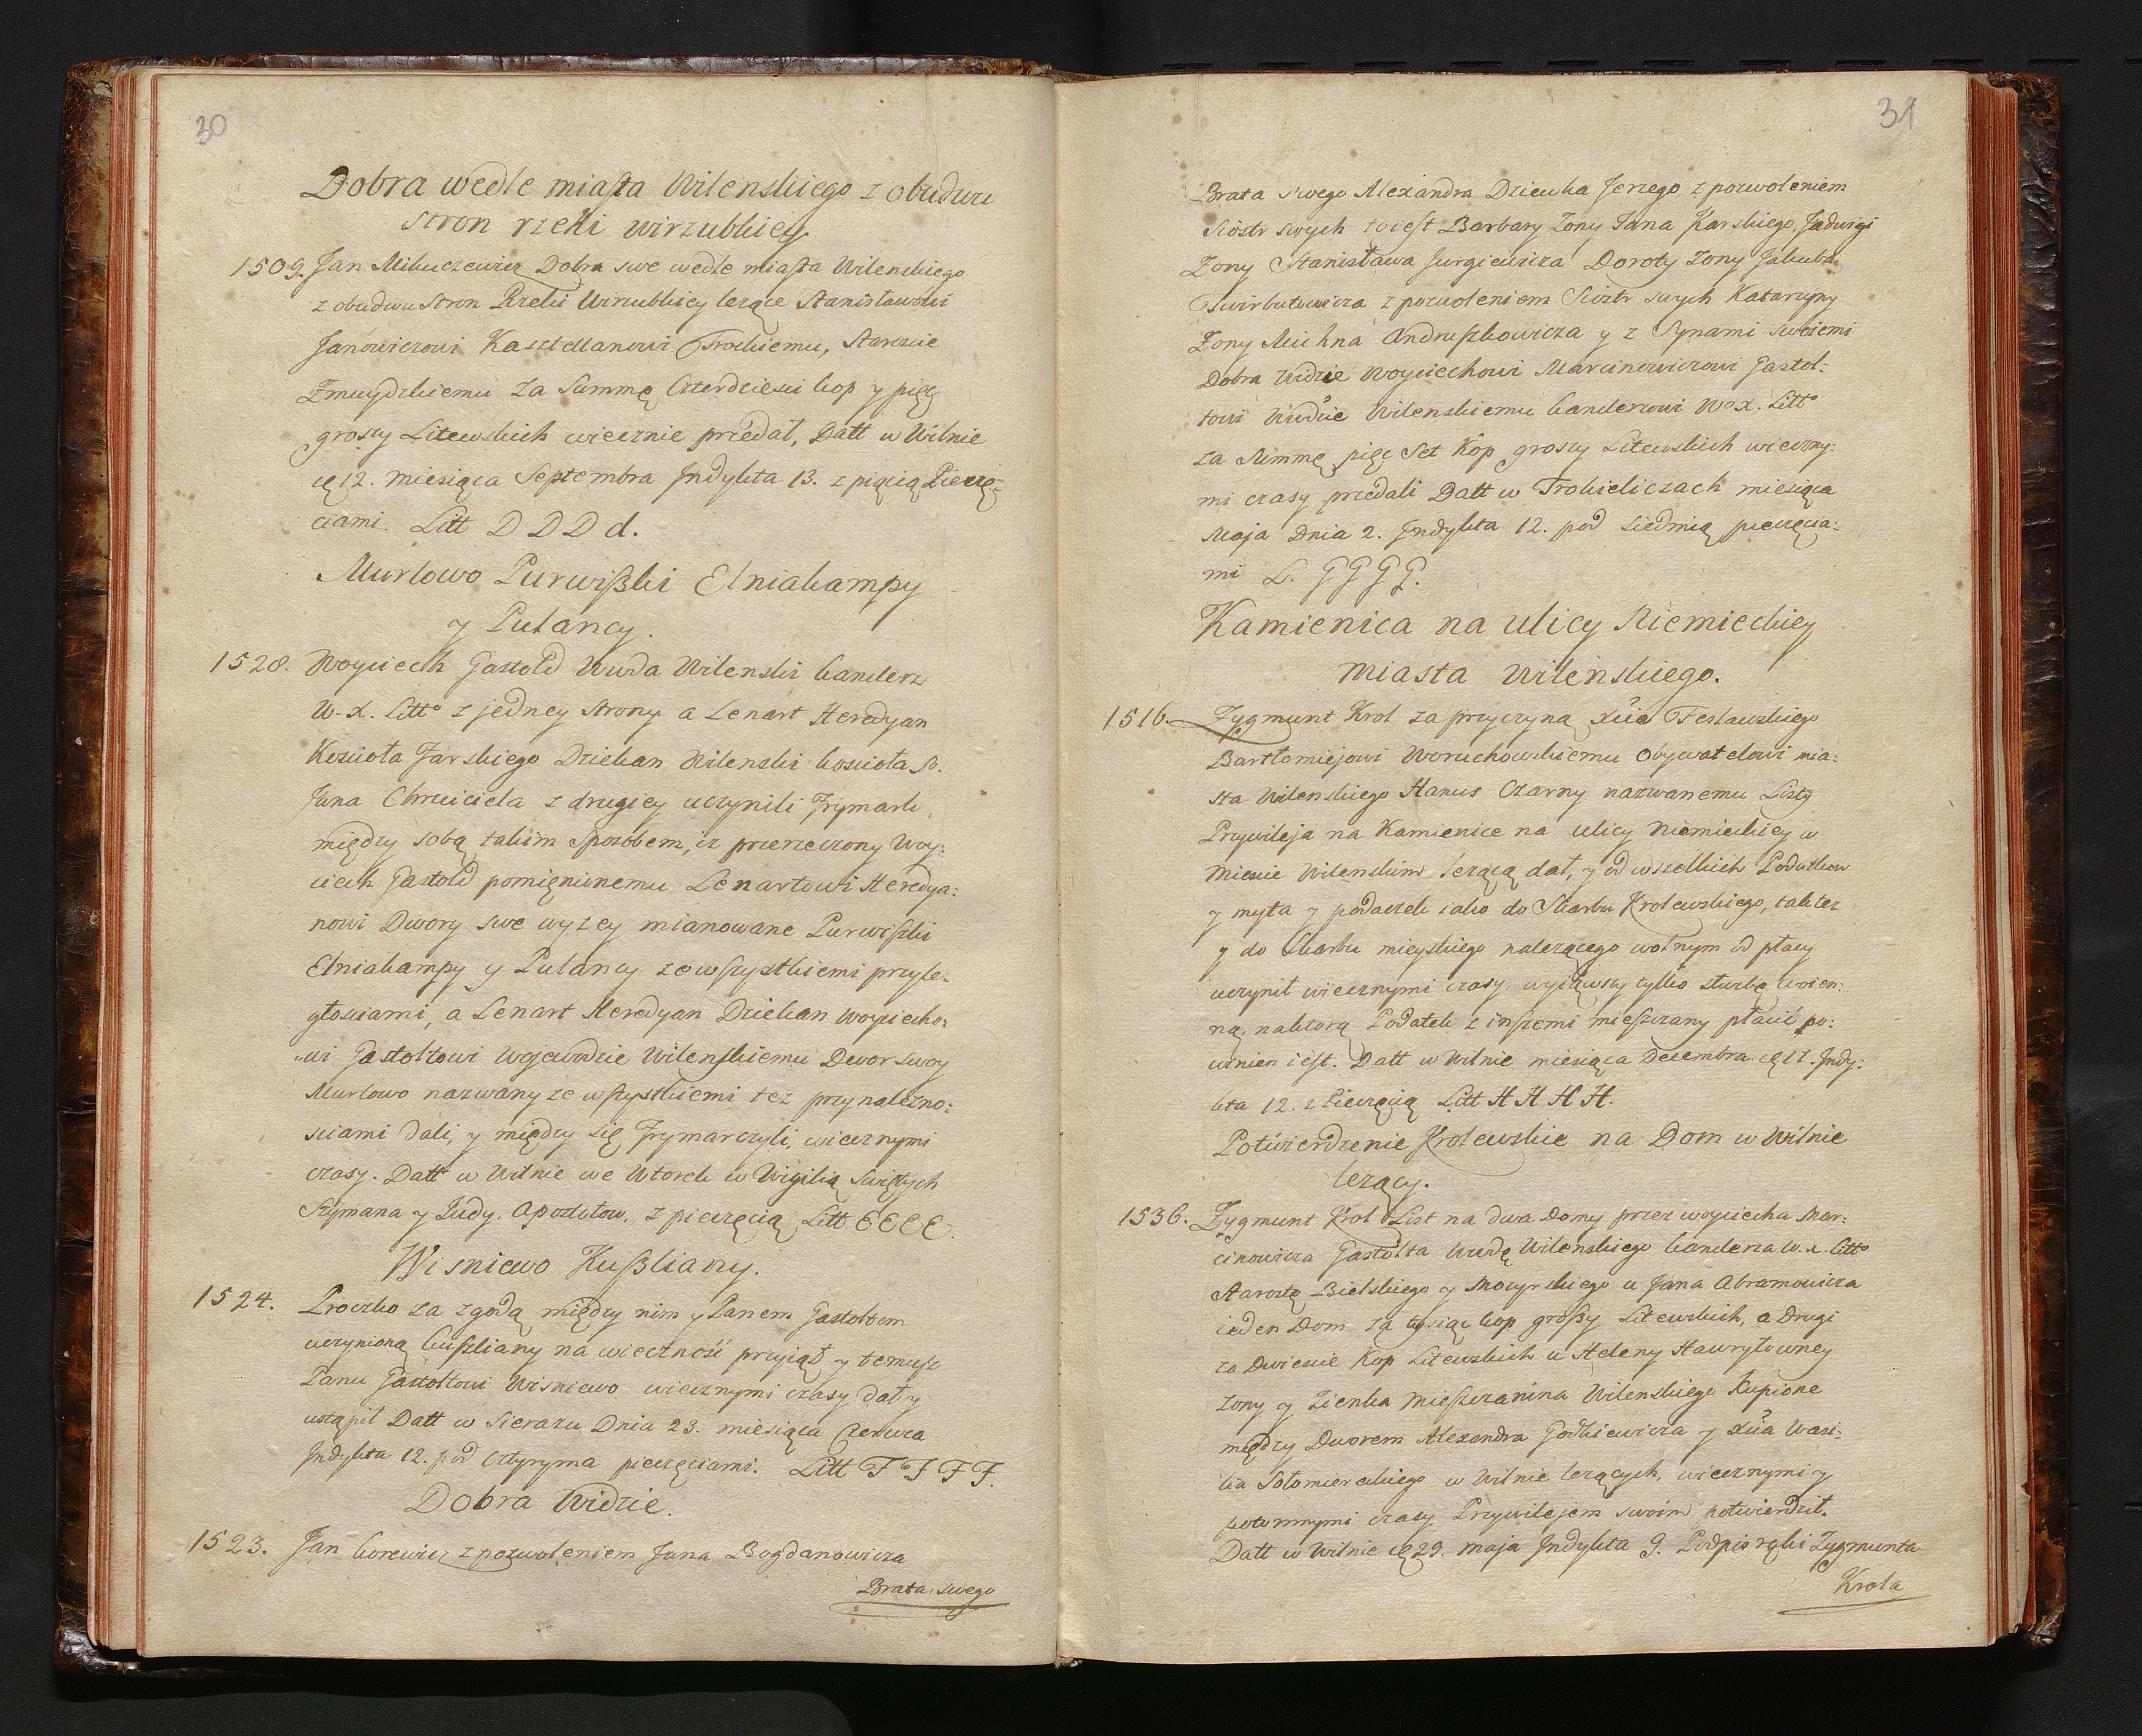 30
Dobra wedle miasta Wilenskiego z obudwu
stron rzeki wirzubkiey
1509. Jan Mikuczewicz Dobra swe wedle miasta Wilenskiego
z obudwu Stron Rzeki Wirzubkiey leząće Stanisławowi
Janowiczowi Kasztellanowi Trockiemu, Staroscie
Zmuydzkiemu za Summę Czterdziesci kop y pięc
groszy Litewskich wiecznie przedał, Datt w Wilnie
12. miesiąca Septembra Jndykta 13. z piącią Pieczę-
ciami. Litt D D D d.
Murlowo Purwiszki Elniakampy
y Pulancy.
1528. Woyciech Gastold Wwda Wilenski kanclerz
W. X. Litto z jedney Strony a Lenart Heredyan
Koscioła Jarskiego Dziekan Wilenski koscioła S.
Jana Chrzciciela z drugiey uczynili Frymark
między sobą takim Sposobem, iz przerzeczony Woy:
ciech Gastold pomięnionemu Lenartowi Heredya:
nowi Dwory swe wyzey mianowane Purwiszki
Elniakampy y Pulancy ze wszystkiemi przyle-
głosciami, a Lenart Heredyan Dziekan Woyciecho:
wi Gastołtowi Wojewodzie Wilenskiemu Dwor swoy
Murlowo nazwany ze wszystkiemi tez przynalezno:
sciami dali, y między się Frymarczyli, wiecznymi
czasy. Datt w Wilnie we Wtorek w Wigilią Swiętych
Szymana y Judy. Apostołow. z pieczęcią Litt E E E E.
Wisniewo Kuszliany.
1524. Proczko za zgodą między nim y Panem Gastołtem
uczynioną kuszliany na wieczność przyiął y temusz
Panu Gastołtowi Wisniewo wiecznymi czasy dał y
ustąpił Datt w Sierazu Dnia 23. miesiąca Czerwca
Jndykta 12. pod cztyryma pieczęciami. Litt F F F F.
Dobra Widzie.
1523. Jan korewicz z pozwoleniem Jana Bogdanowicza
Brata swego
31
Brata swego Alexandra Dziewka Jerzego z pozwoleniem
Siostr swych to iest Barbary Zony Jana Karskiego, Jadwigi
Zony Stanisława Jurgiewicza Doroty Zony Jakuba
Swirbutowicza z pozwoleniem Siostr swych Katarzyny
Zony Michna Andruszkowicza y z Synami swoiemi
Dobra Widzie Woyciechowi Marcinowiczowi Gastoł:
towi Wwdzie Wilenskiemu kanclerzowi W. X. Litto
za Summę pięc Set Kop groszy Litewskich wieczny:
mi czasy przedali Datt w Trokieliczach miesiąca
Maja Dnia 2. Jndykta 12. pod siedmią pieczęcia:
mi L. G G G G.
Kamienica na ulicy Niemieckiey
miasta Wilenskiego.
1516. Zygmunt Krol za przyczyną Xcia Teslawskiego
Bartłomiejowi Woruchowskiemu Obywatelowi mia:
sta Wilenskiego Hanus Czarny nazwanemu Listy
Przywileja na Kamienice na ulicy Niemieckiey w
Miescie Wilenskim lezącą dał, y od wszelkich Podatkow
y myta y podaczek iako do Skarbu Krolewskiego, taktez
y do Skarbu mieyskiego nalezącego wolnym od płacy
uczynił wiecznymi czasy, wyiąwszy tylko słuzbę woien:
ną, naktorą Podatek z inszemi mieszczany płacić po:
winien iest. Datt w Wilnie miesiąca Decembra 17. Jndy:
kta 12. z Pieczęcią Litt H H H H.
Potwierdzenie Krolewskie na Dom w Wilnie
lezący.
1536. Zygmunt Krol List na dwa Domy przez woyciecha Mar:
cinowicza Gastołta Wwdę Wilenskiego kanclerza W. X. Litto
Starostę Bielskiego y Mozyrskiego u Jana Abramowicza
ieden Dom za tysiąc kop groszy Litewskich, a Drugi
za Dwiescie Kop Litewskich u Heleny Hawryłowney
zony y Zienka Mieszczanina Wilenskiego Kupione
między Dworem Alexandra Chodkiewicza y Xcia Wasi:
lia Sołomereckiego w Wilnie lezących, wiecznymi y
potomnymi czasy Przywilejem swoim potwierdził.
Datt w Wilnie 29. maja Jndykta 9. Podpis ręki Zygmunta
Krola